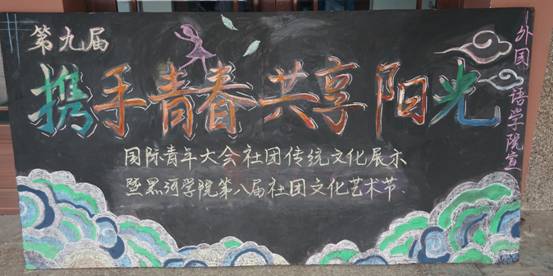 第九届
携手青春共享阳光
国际青年大会社团传统文化展示
暨黑河学院第八届社团文化艺术节
外国语学院宣